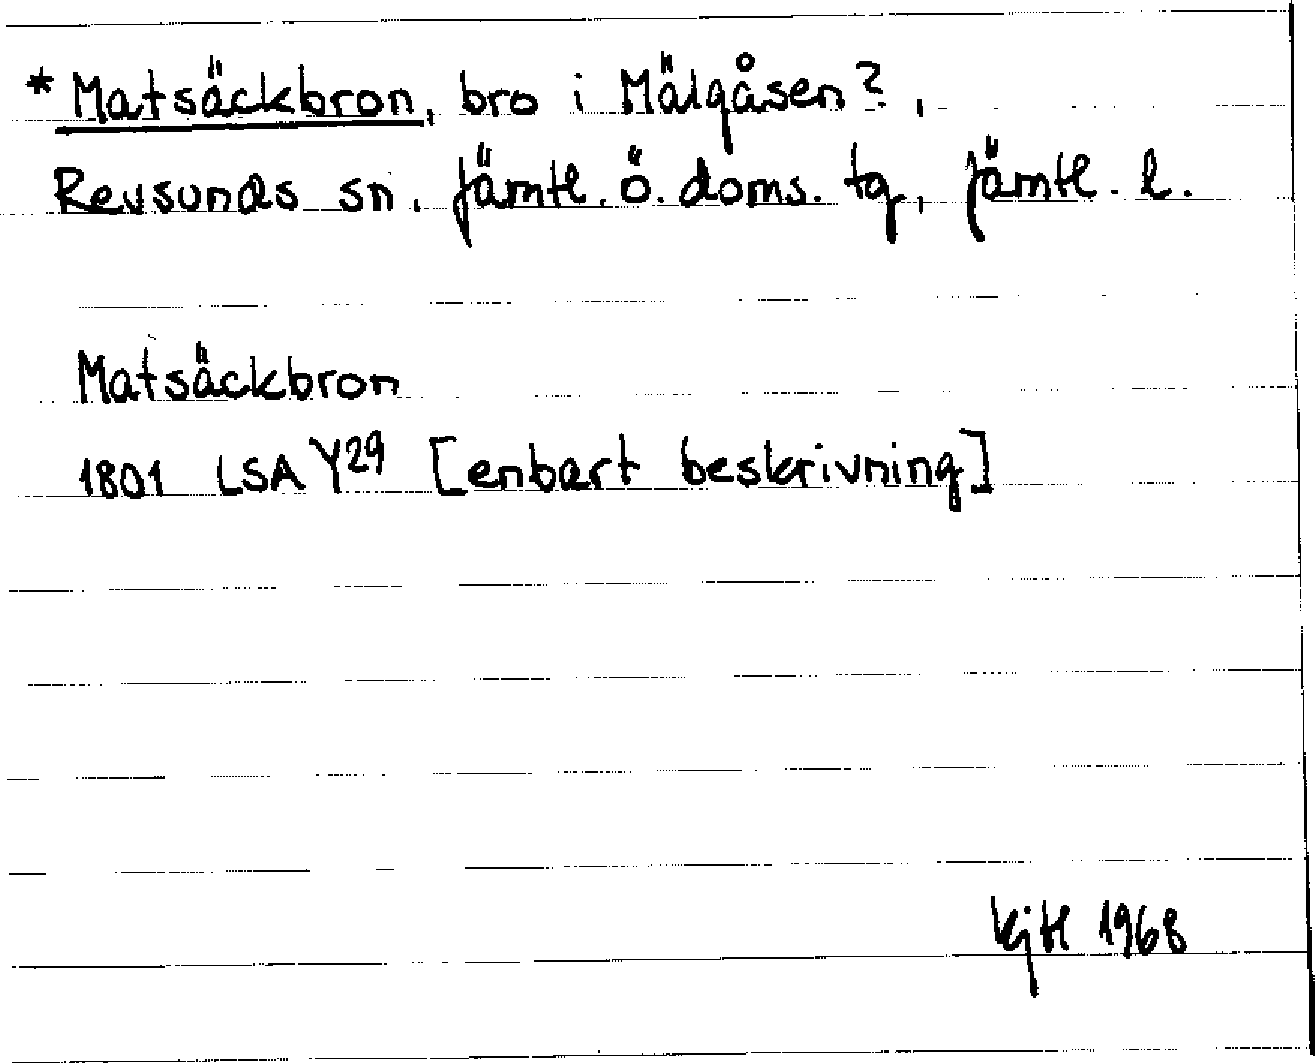 * Matsäckbron, bro i Mälgåsen?,
Revsunds sn. Jämtl. ö. doms. tg, Jämtl. l.
Matsäckbron
1801 LSA Y29 [enbart beskrivning]
1968